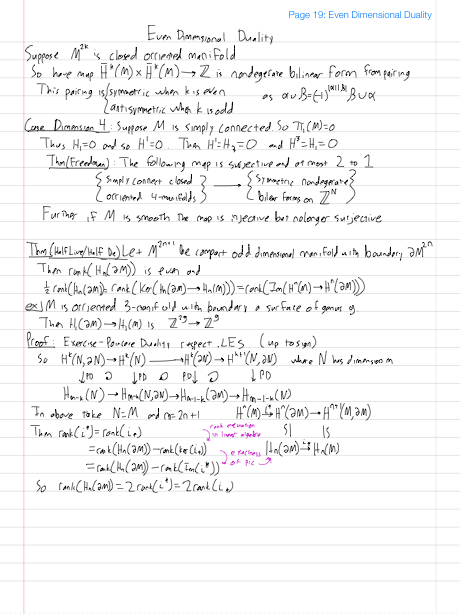 Page 19: Even Dimensional Duality
Even Dimensional Duality
Suppose M^{2k} is closed orriented manifold
So have map H̄^k(M) × H̄^k(M) → ℤ is nondegerate bilinear form from pairing
This pairing is { symmetric when k is even
antisymmetric when k is odd
as α∪β = (-1)^{|α||β|} β∪α
Case Dimension 4: Suppose M is simply connected. So π₁(M)=0
Thus H₁=0 and so H¹=0. Then H¹=H₃=0 and H³=H₁=0
Thm (Freedman): The following map is surjective and at most 2 to 1
{ Simply connect closed orriented 4-manifolds } → { Symmetric nondegerate bilear forms on ℤ^N }
Further if M is smooth the map is injective but nolonger surjective
Thm (Half Live/Half Die) Let M^{2n+1} be compact odd dimensional manifold with boundary ∂M^{2n}
Then rank(H_n(∂M)) is even and
½ rank(H_n(∂M)) = rank(ker(H_n(∂M) → H_n(M))) = rank(Im(H^n(M) → H^n(∂M)))
ex) M is orriented 3-manifold with boundary a surface of genus g.
Then H₁(∂M) → H₁(M) is ℤ^{2g} → ℤ^g
Proof: Exercise - Poincare Duality respect LES (up to sign)
So H^k(N,∂N) → H^k(N) → H^k(∂N) → H^{k+1}(N,∂N) where N has dimension m
↓PD ↻ ↓PD ↻ PD↓ ↻ ↓PD
H_{m-k}(N) → H_{m-k}(N,∂N) → H_{m-1-k}(∂N) → H_{m-1-k}(N)
In above take N=M and m=2n+1 H^n(M) →^{i*} H^n(∂M) → H^{n+1}(M,∂M)
Then rank(i*) = rank(i_*) rank equation in linear algebra
= rank(H_n(∂M)) - rank(ker i_*) exactness of pic H_n(∂M) →^{i_*} H_n(M)
= rank(H_n(∂M)) - rank(Im(i*))
So rank(H_n(∂M)) = 2 rank(i*) = 2 rank(i_*)